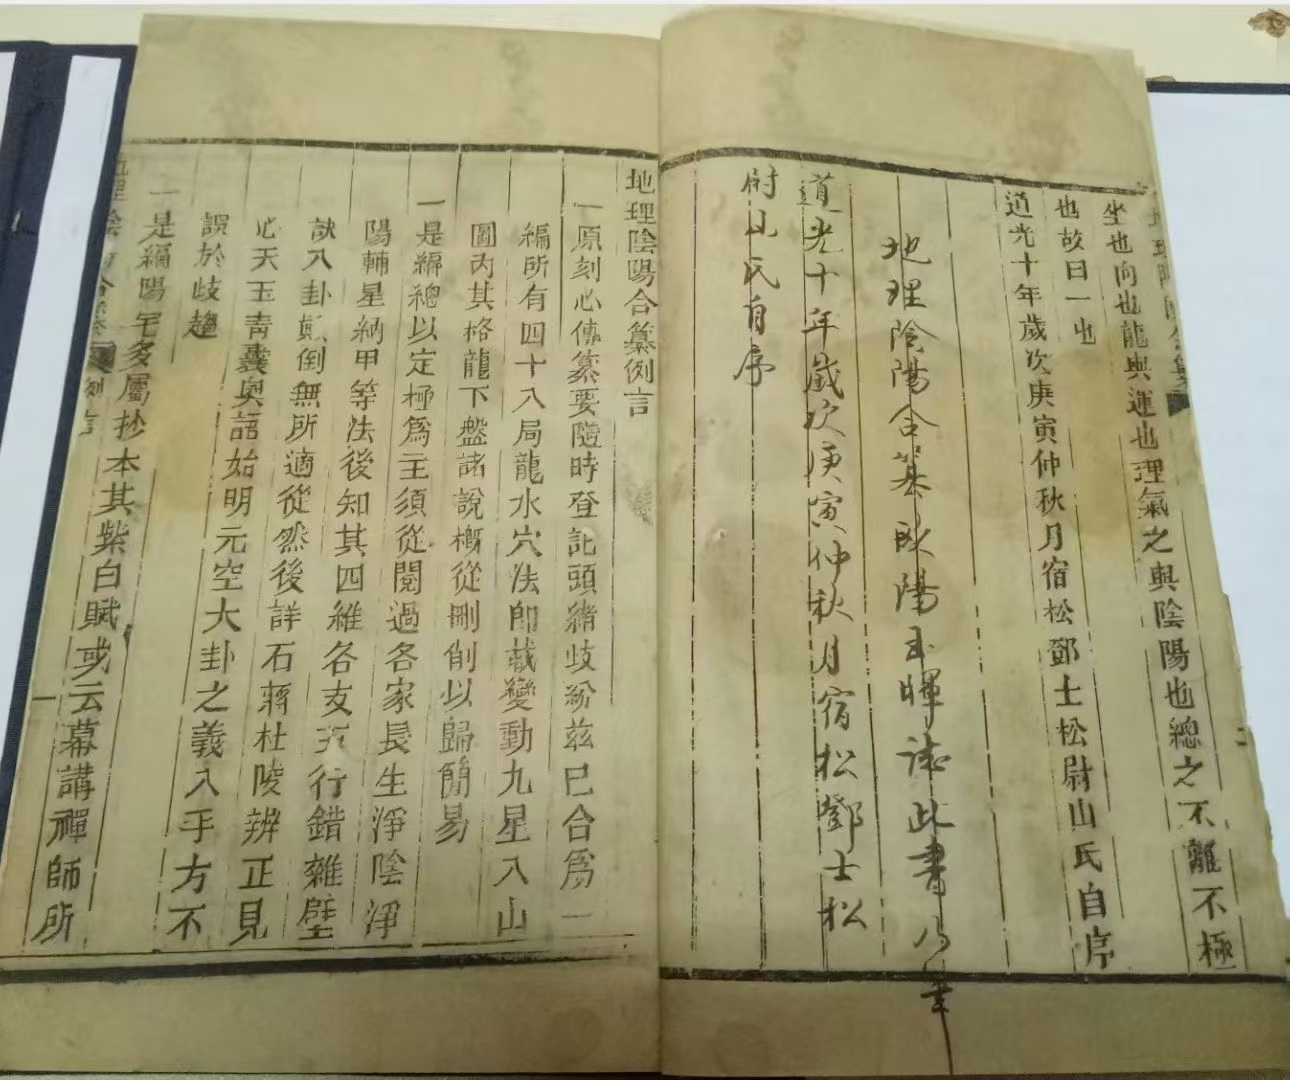 坐也向也龍與運也理氣之與陰陽也總之不離不極
也故曰一也
道光十年歲次庚寅仲秋月宿松鄧士松尉山氏自序
地理陰陽合纂歐陽玉暉誌此書乃筆
道光十年歲次庚寅仲秋月宿松鄧士松
尉山氏自序
地理陰陽合纂例言
一原刻心傳纂要隨時登記頭緒歧紛茲已合為一
編所有四十八局龍水穴法即載變動九星入山
圖內其格龍下盤諸說概從刪削以歸簡易
一是編總以定極為主須從閱過各家長生淨陰淨
陽輔星納甲等法後知其四維各支五行錯雜壁
訣八卦顛倒無所適從然後詳石蔣杜陵辨正見
心天玉青囊奧語始明元空大卦之義入手方不
誤於歧趨
一是編陽宅多屬抄本其紫白賦或云幕講禪師所
例言
一